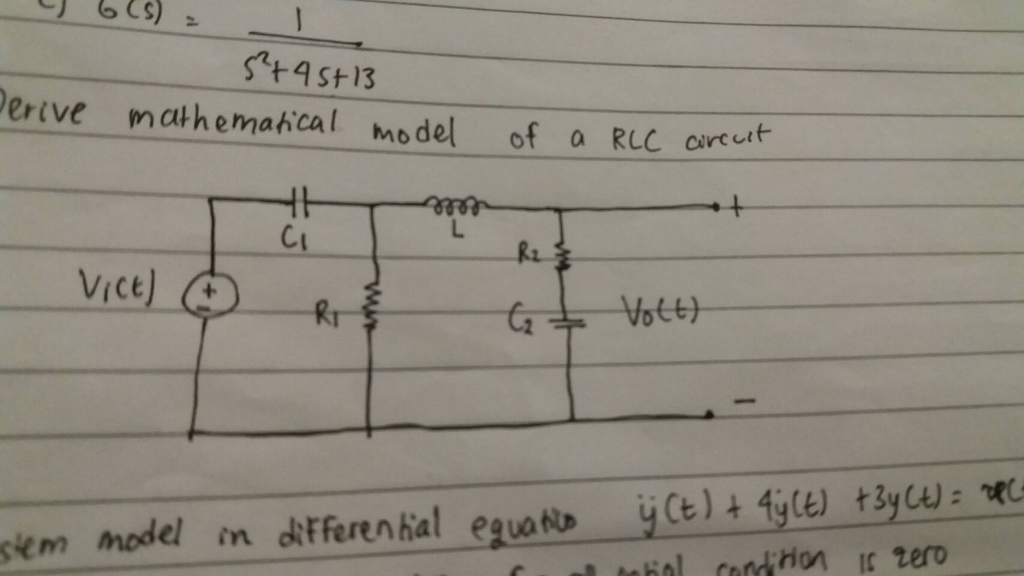 c) G(s) = 1 / s²+4s+13
Derive mathematical model of a RLC circuit
C₁
L
R₂
V₁(t)
+
-
R₁
C₂
V₀(t)
+
-
stem model in differential equatio ÿ(t) + 4ẏ(t) + 3y(t) =
condition is zero